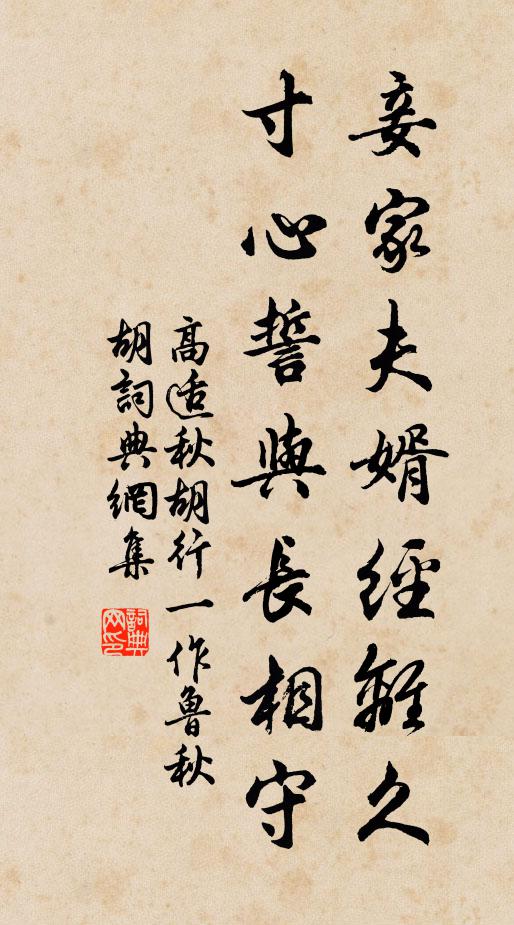 妾家夫婿經離久
寸心誓與長相守
高适秋胡行一作魯秋
胡詞典網集
詞典
网印